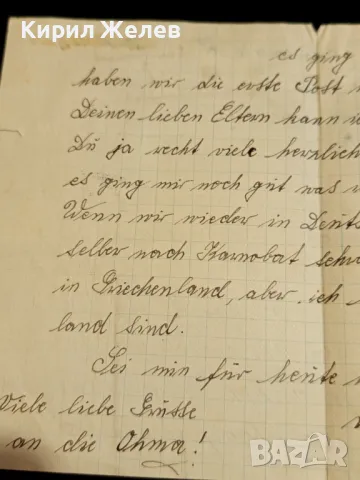 Кирил Желев
es ging
haben wir die erste Post
Deinen lieben Eltern kann
Du ja recht viele herzlich
es ging mir noch gut was
Wenn wir wieder in Deuts
selber nach Karnobat schr
in Griechenland, aber ich
land sind.
Sei min für heute
Viele liebe Grüsse
an die Ohma!
BAZAR